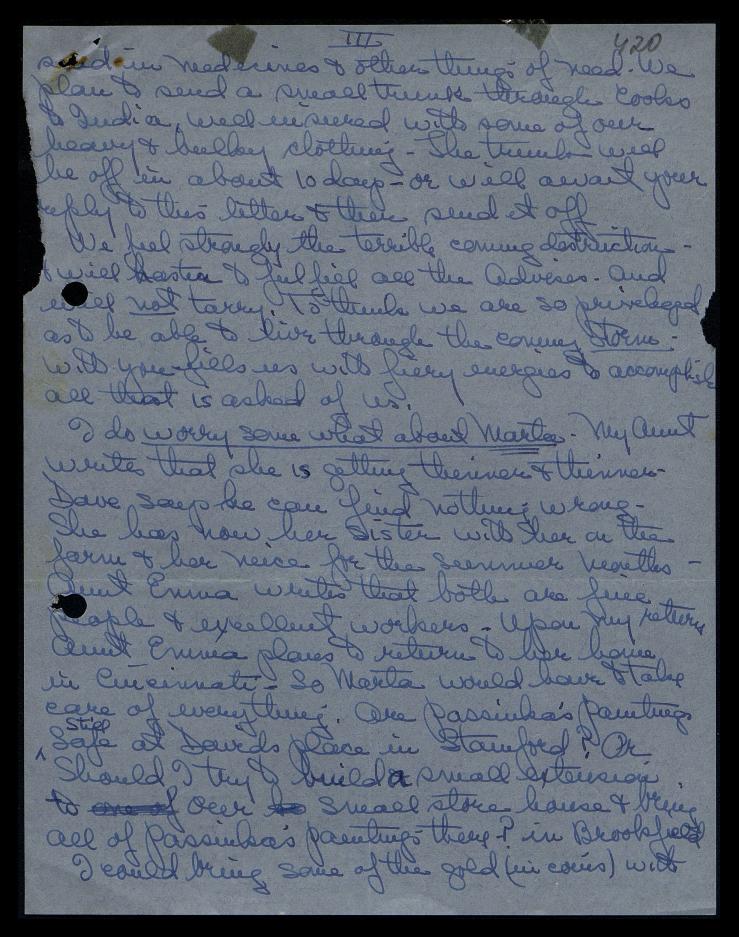 III
420
send in medecines & other things of need. We
plan to send a small trunk through Cooks
to India, well insured with some of our
heavy & bulkey clothing - The trunk will
be off in about 10 days - or will await your
reply to this letter & then send it off
We feel strongly the terrible coming destruction -
& will hasten to fulfill all the Advises. And
will not tarry. To think we are so privileged
as to be able to live through the coming Storm -
with you fills us with fiery energies to accomplish
all that is asked of us.
I do worry some what about Marta - My Aunt
writes that she is getting thinner & thinner -
Dave says he can find nothing wrong -
She has now her sister with her on the
farm & her neice for the summer months -
Aunt Emma writes that both are fine
people & excellent workers - Upon my return
Aunt Emma plans to return to her home
in Cincinnati - So Marta would have to take
care of everything. Are Passinka's paintings
still
Safe at David's place in Stamford? Or
Should I try to build a small extension
to one of our to small store house & bring
all of Passinka's paintings there? in Brookfield
I could bring some of the gold (in coins) with